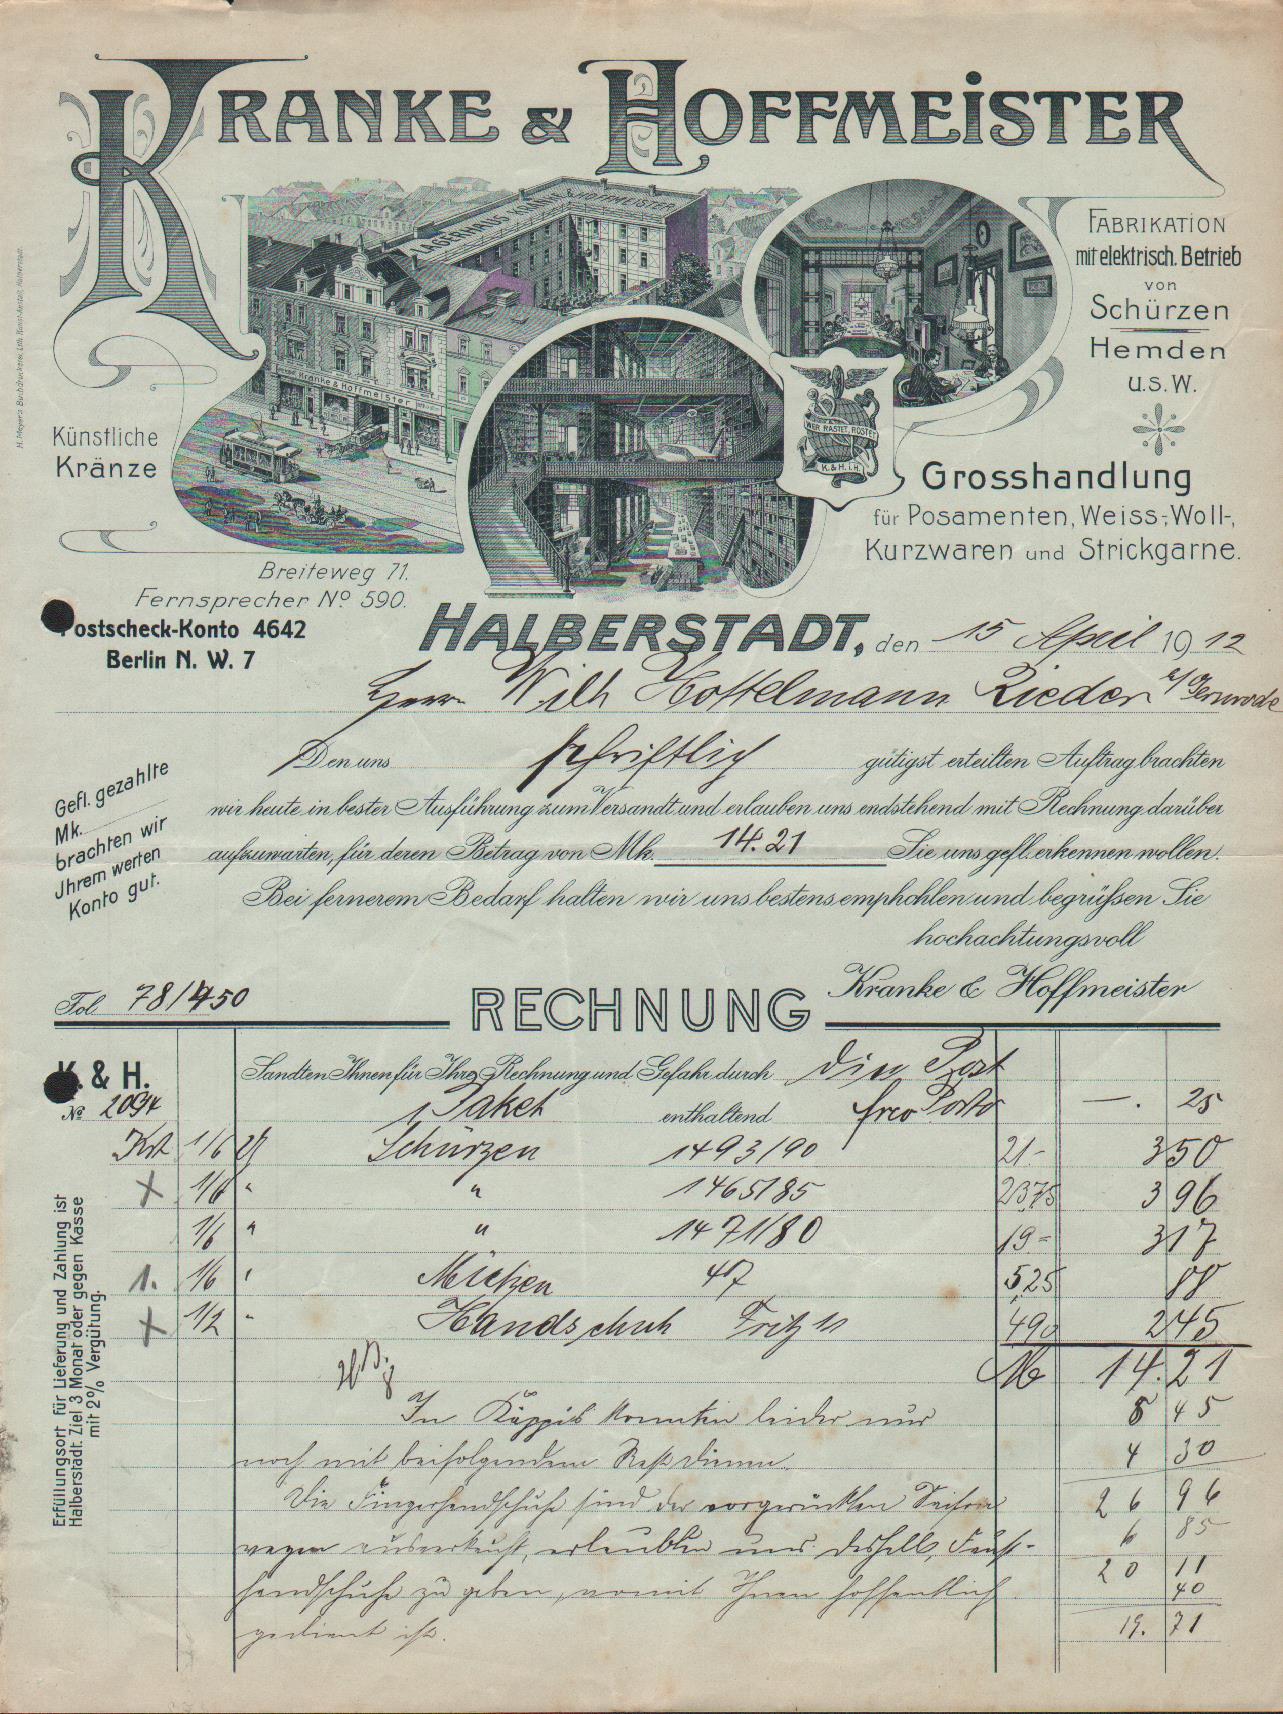 KRANKE & HOFFMEISTER
LAGERHAUS KRANKE & HOFFMEISTER
Kranke & Hoffmeister
WER RASTET, ROSTET
K. & H. i. H.
FABRIKATION
mit elektrisch. Betrieb
von
Schürzen
Hemden
u.s.w.
Künstliche
Kränze
Grosshandlung
für Posamenten, Weiss-, Woll-,
Kurzwaren und Strickgarne.
H. Meyer's Buchdruckerei, Lith. Kunst-Anstalt, Halberstadt.
Breiteweg 71.
Fernsprecher No 590.
Postscheck-Konto 4642
Berlin N. W. 7
HALBERSTADT, den 15 April 1912
Herrn Wilh Hottelmann Rieder b/Gernrode
Den uns schriftlich gütigst erteilten Auftrag brachten
wir heute in bester Ausführung zum Versandt und erlauben uns endstehend mit Rechnung darüber
aufzuwarten, für deren Betrag von Mk. 14.21 Sie uns gefl. erkennen wollen.
Bei fernerem Bedarf halten wir uns bestens empfohlen und begrüßen Sie
hochachtungsvoll
Kranke & Hoffmeister
Gefl. gezahlte
Mk.
brachten wir
Jhrem werten
Konto gut.
Fol. 78/450
RECHNUNG
K. & H.
No 2094
Sandten Ihnen für Ihre Rechnung und Gefahr durch die Post
1 Paket enthaltend frco Porto —. 25
Krt 1/6 Dz Schürzen 1493/90 21- 3 50
1/6 " " 1465/85 23 75 3 96
1/6 " " 1471/80 19- 3 17
1. 1/6 " Mützen 47 5,25 88
1/2 " Handschuh Fritz 11 4,90 2 45
M 14.21
8 45
4 30
26 96
6 85
20 11
40
19. 71
In Käppis konnten leider nur
noch mit beifolgendem Rest dienen.
Die Fingerhandschuhe sind der vorgerückten Saison
wegen ausverkauft, erlaubten uns deshalb, Faust-
handschuhe zu geben, womit Ihnen hoffentlich
gedient ist.
Erfüllungsort für Lieferung und Zahlung ist
Halberstadt. Ziel 3 Monat oder gegen Kasse
mit 2% Vergütung.